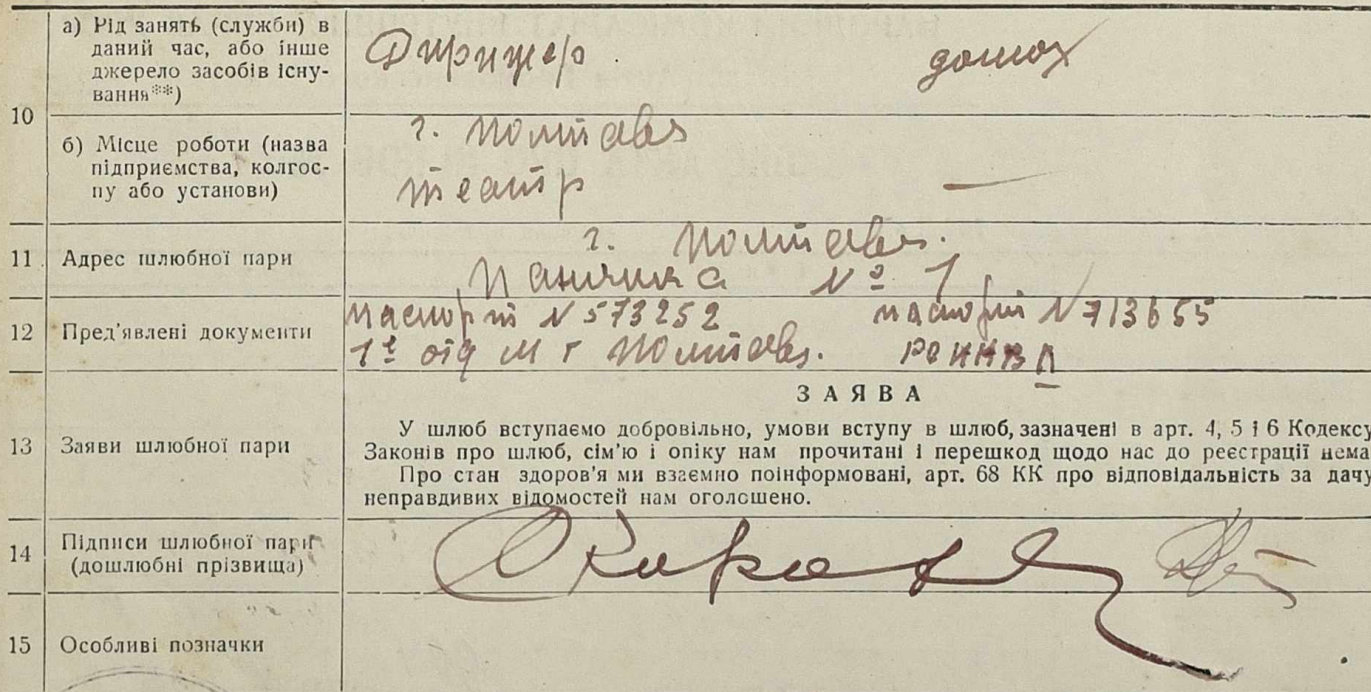 10
а) Рід занять (служби) в
даний час, або інше
джерело засобів існу-
вання**)
Дирижер
домох
б) Місце роботи (назва
підприємства, колгос-
пу або установи)
г. Полтава
театр
—
11 Адрес шлюбної пари
г. Полтава.
№ 1
12 Пред'явлені документи
паспорт N 573252 паспорт N 713655
1е отд М г Полтава.
З А Я В А
13 Заяви шлюбної пари
У шлюб вступаємо добровільно, умови вступу в шлюб, зазначені в арт. 4, 5 і 6 Кодексу
Законів про шлюб, сім'ю і опіку нам прочитані і перешкод щодо нас до реєстрації нема
Про стан здоров'я ми взаємно поінформовані, арт. 68 КК про відповідальність за дачу
неправдивих відомостей нам оголошено.
14 Підписи шлюбної пари
(дошлюбні прізвища)
15 Особливі позначки